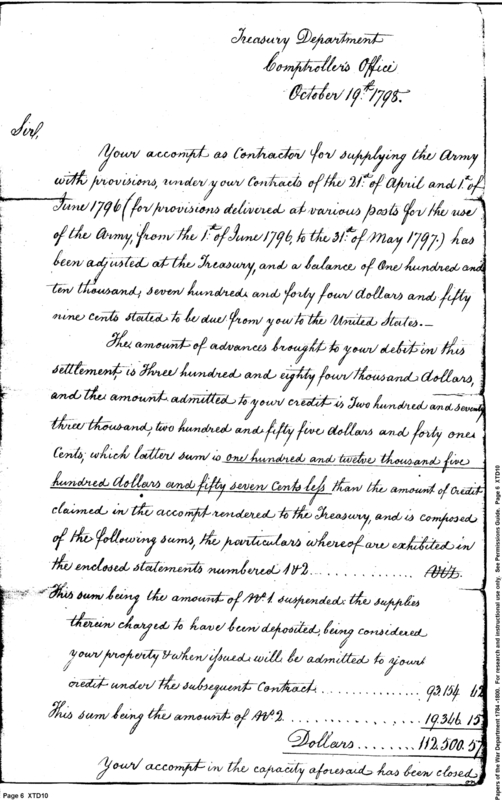 Treasury Department
Comptroller's Office
October 19.th 1798.
Sir,
Your accompt as Contractor for supplying the Army
with provisions, under your Contracts of the 21.st of April and 1.st of
June 1796 (for provisions delivered at various posts for the use
of the Army, from the 1.st of June 1796, to the 31.st of May 1797.) has
been adjusted at the Treasury, and a balance of One hundred and
ten thousand, seven hundred and forty four dollars and fifty
nine cents stated to be due from you to the United States.—
The amount of advances brought to your debit in this
settlement, is Three hundred and eighty four thousand dollars,
and the amount admitted to your credit is Two hundred and seventy
three thousand, two hundred and fifty five dollars and forty one
Cents; which latter sum is one hundred and twelve thousand five
hundred dollars and fifty seven Cents less than the amount of Credit
claimed in the accompt rendered to the Treasury, and is composed
of the following sums, the particulars whereof are exhibited in
the enclosed statements numbered 1 & 2 ............ Viz.
This sum being the amount of No. 1. suspended the supplies
therein charged to have been deposited, being considered
your property & when issued will be admitted to your
credit under the subsequent Contract ............ 93.154 42
This sum being the amount of No. 2 ............ 19.346 15
Dollars ........ 112.500.57
Your accompt in the capacity aforesaid has been closed
Page 6 XTD10
Papers of the War Department 1784-1800. For research and instructional use only. See Permissions Guide. Page 6 XTD10